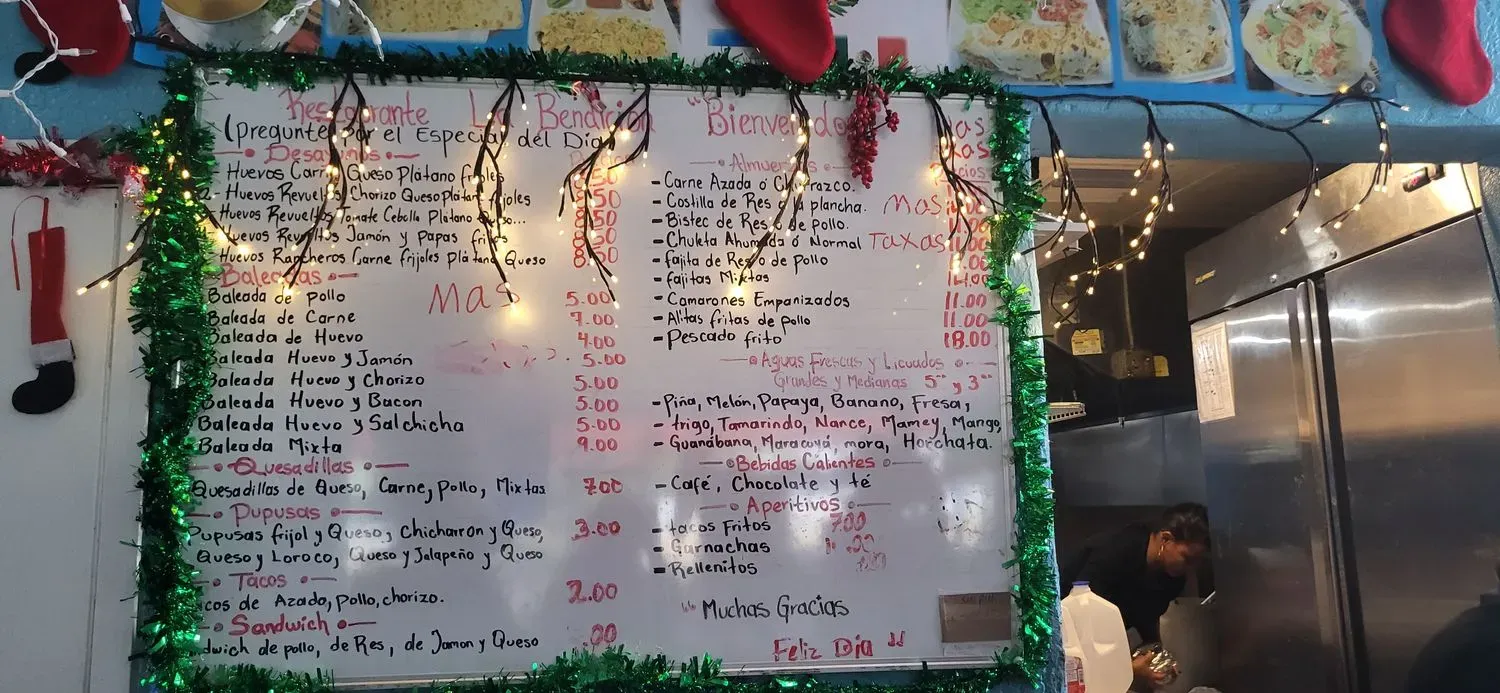 Restaurante La Bendición
"Bienvenido
(pregunte por el Especial del Día
Desayunos
Huevos Carne Queso Plátano frijoles 8.50
2- Huevos Revueltos Chorizo Queso Plátano frijoles 8.50
Huevos Revueltos Tomate Cebolla Plátano Queso... 8.50
Huevos Revueltos Jamón y Papas fritas 8.50
Huevos Rancheros Carne frijoles Plátano Queso 8.50
Baleadas
MAS
Baleada de pollo 5.00
Baleada de Carne 7.00
Baleada de Huevo 4.00
Baleada Huevo y Jamón 5.00
Baleada Huevo y Chorizo 5.00
Baleada Huevo y Bacon 5.00
Baleada Huevo y Salchicha 5.00
Baleada Mixta 9.00
Quesadillas
Quesadillas de Queso, Carne, Pollo, Mixtas 7.00
Pupusas
Pupusas frijol y Queso, Chicharron y Queso, 3.00
Queso y Loroco, Queso y Jalapeño y Queso
Tacos
cos de Azada, pollo, chorizo. 2.00
Sandwich
dwich de pollo, de Res, de Jamon y Queso .00
Almuerzos
- Carne Azada ó Churrazco.
- Costilla de Res a la plancha. MAS
- Bistec de Res o de pollo.
- Chuleta Ahumada ó Normal TAXAS 11.00
- fajita de Res o de pollo
- fajitas Mixtas 14.00
- Camarones Empanizados 11.00
- Alitas fritas de pollo 11.00
- Pescado frito 18.00
Aguas Frescas y Licuados
Grandes y Medianas 5°° y 3°°
- Piña, Melón, Papaya, Banano, Fresa,
- trigo, Tamarindo, Nance, Mamey, Mango,
- Guanábana, Maracuyá, mora, Horchata.
Bebidas Calientes
- Café, Chocolate y té
Aperitivos
- tacos Fritos 7.00
- Garnachas
- Rellenitos
Muchas Gracias
Feliz Día